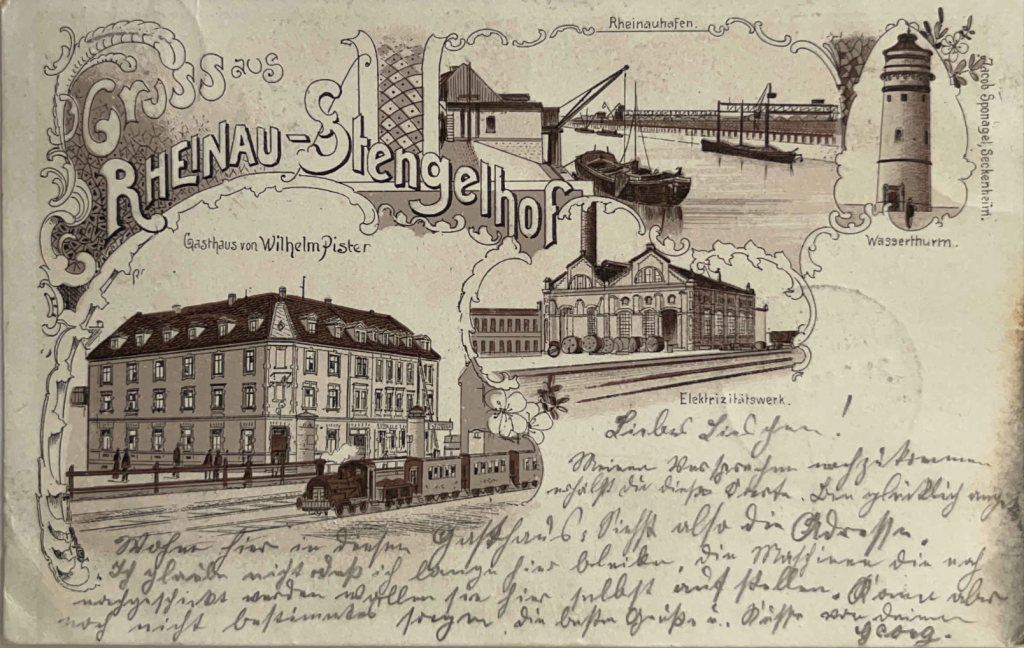 Gruss aus
RHEINAU-Stengelhof
Rheinauhafen.
Jacob Sponagel, Seckenheim.
Wasserthurm.
Gasthaus von Wilhelm Pister
Elektrizitätswerk.
Liebes Lieschen!
Meinen Versprechen nachzukommen
erhälst du diese Karte. Bin glücklich
Wohne hier in diesen Gasthaus, Siehst also die Adresse.
Ich glaube nicht daß ich lange hier bleibe, die Maschinen die
nachgeschickt werden wollen sie hier selbst auf stellen. Kann aber
noch nicht bestimmtes sagen, die besten Grüße u. Küsse von deinem
Georg.